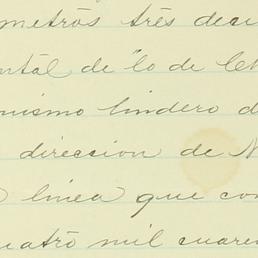 metros tres deci
ental de "lo de
mismo lindero d
direccion de N
linea que con
uatro mil cuaren